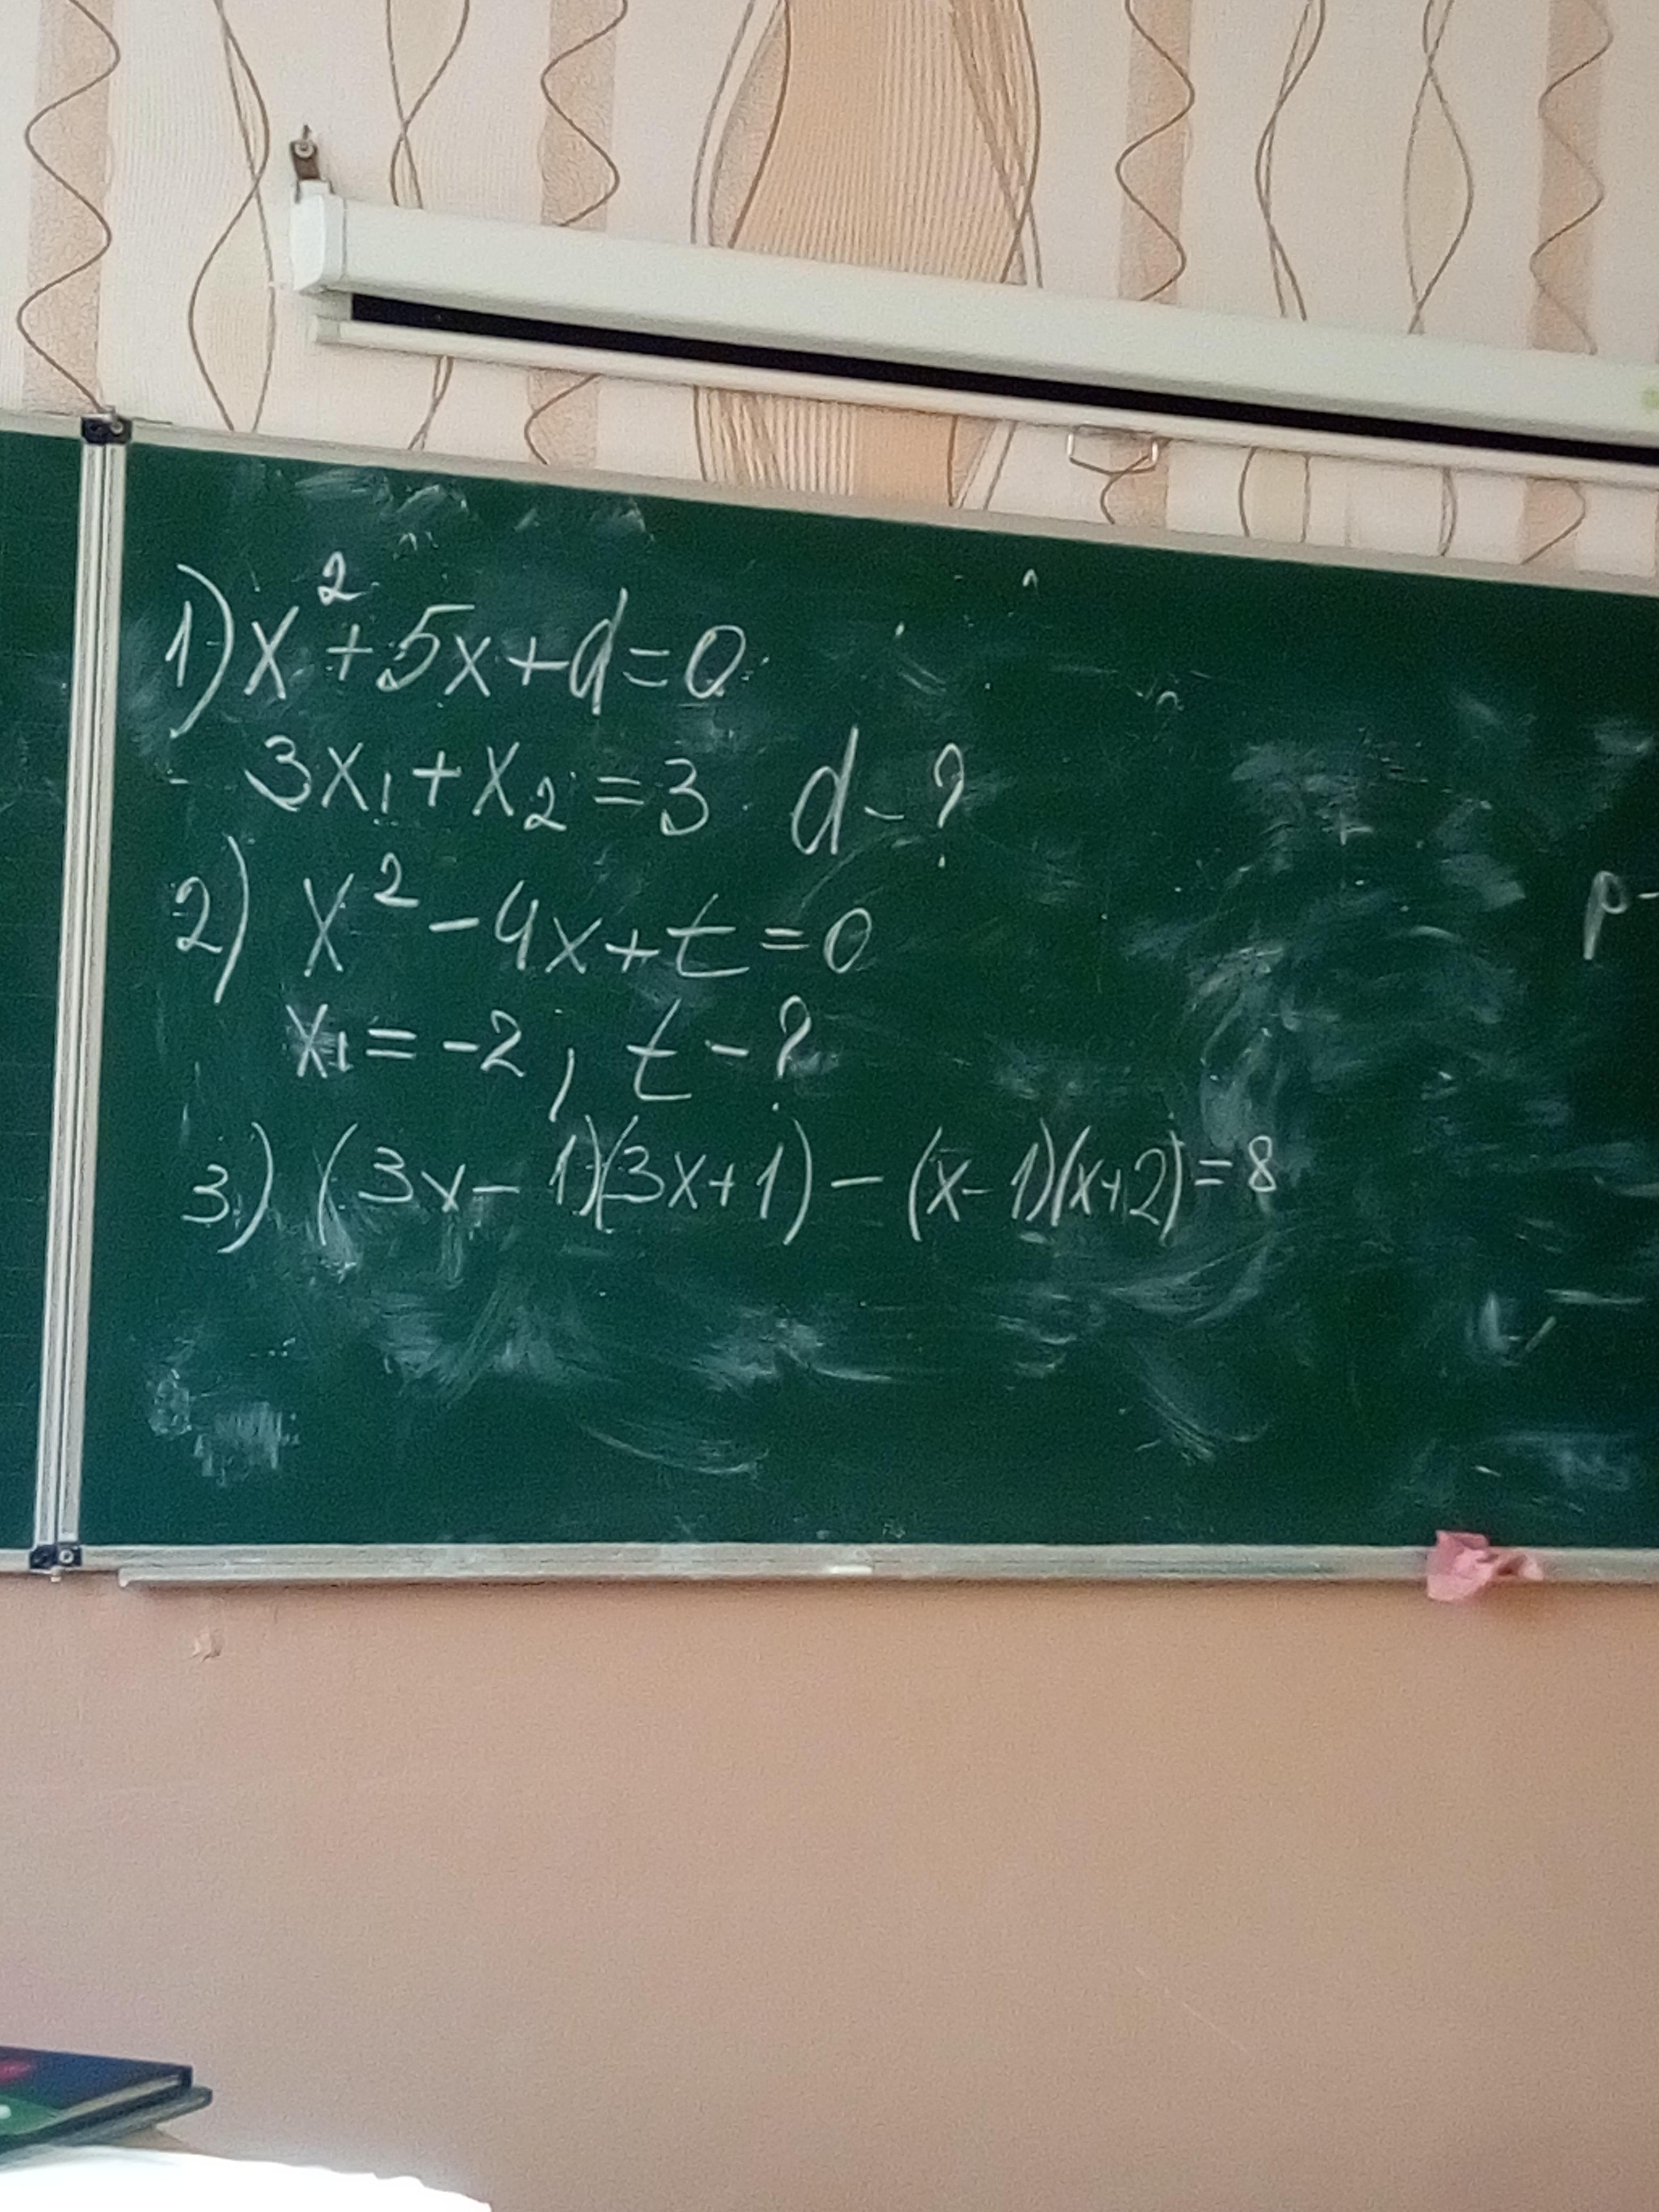 1) x² + 5x + d = 0
3x₁ + x₂ = 3 d - ?
2) x² - 4x + t = 0
x₁ = -2, t - ?
3) (3x - 1)(3x + 1) - (x - 1)(x + 2) = 8
p -